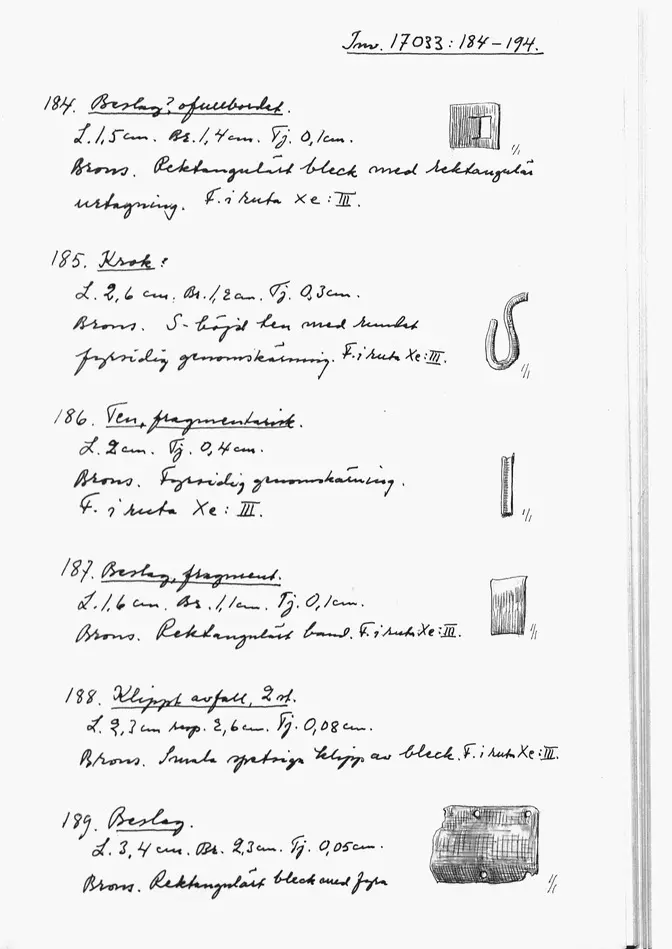 Inv. 17033:184-194.
184. Beslag?, ofullbordat.
L. 1,5 cm. Br. 1,4 cm. Tj. 0,1 cm.
Brons. Rektangulärt bleck med rektangulär
urtagning. F. i ruta Xe:III.
1/1
185. Krok?
L. 2,6 cm. Br. 1,2 cm. Tj. 0,3 cm.
Brons. S-böjd ten med rundat
fyrsidig genomskärning. F. i ruta Xe:III.
1/1
186. Ten, fragmentarisk.
L. 2 cm. Tj. 0,4 cm.
Brons. Fyrsidig genomskärning.
F. i ruta Xe: III.
1/1
187. Beslag, fragment.
L. 1,6 cm. Br. 1,1 cm. Tj. 0,1 cm.
Brons. Rektangulärt band. F. i ruta Xe:III.
1/1
188. Klippt avfall, 2 st.
L. 2,3 cm resp. 2,6 cm. Tj. 0,08 cm.
Brons. Smala spetsiga klipp av bleck. F. i ruta Xe:III.
189. Beslag.
L. 3,4 cm. Br. 2,3 cm. Tj. 0,05 cm.
Brons. Rektangulärt bleck med fyra
1/1